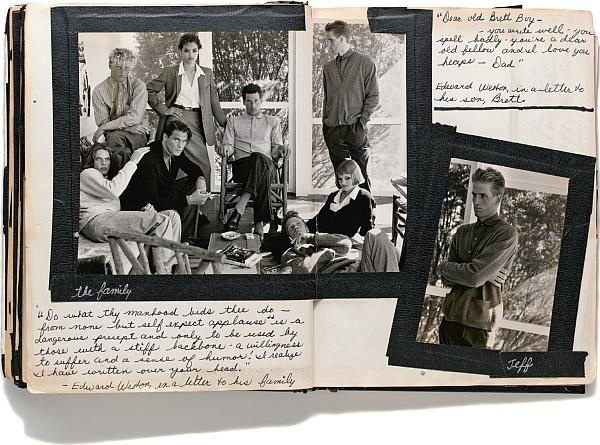 "Dear old Brett Boy –
– you write well – you
spell badly – you're a dear
old fellow and I love you
heaps – Dad"
Edward Weston, in a letter to
his son, Brett.
the family
"Do what thy manhood bids thee do –
from none but self expect applause" is a
dangerous precept and only to be used by
those with a stiff backbone – a willingness
to suffer and a sense of humor! I realize
I have written over your head."
– Edward Weston, in a letter to his family
Jeff